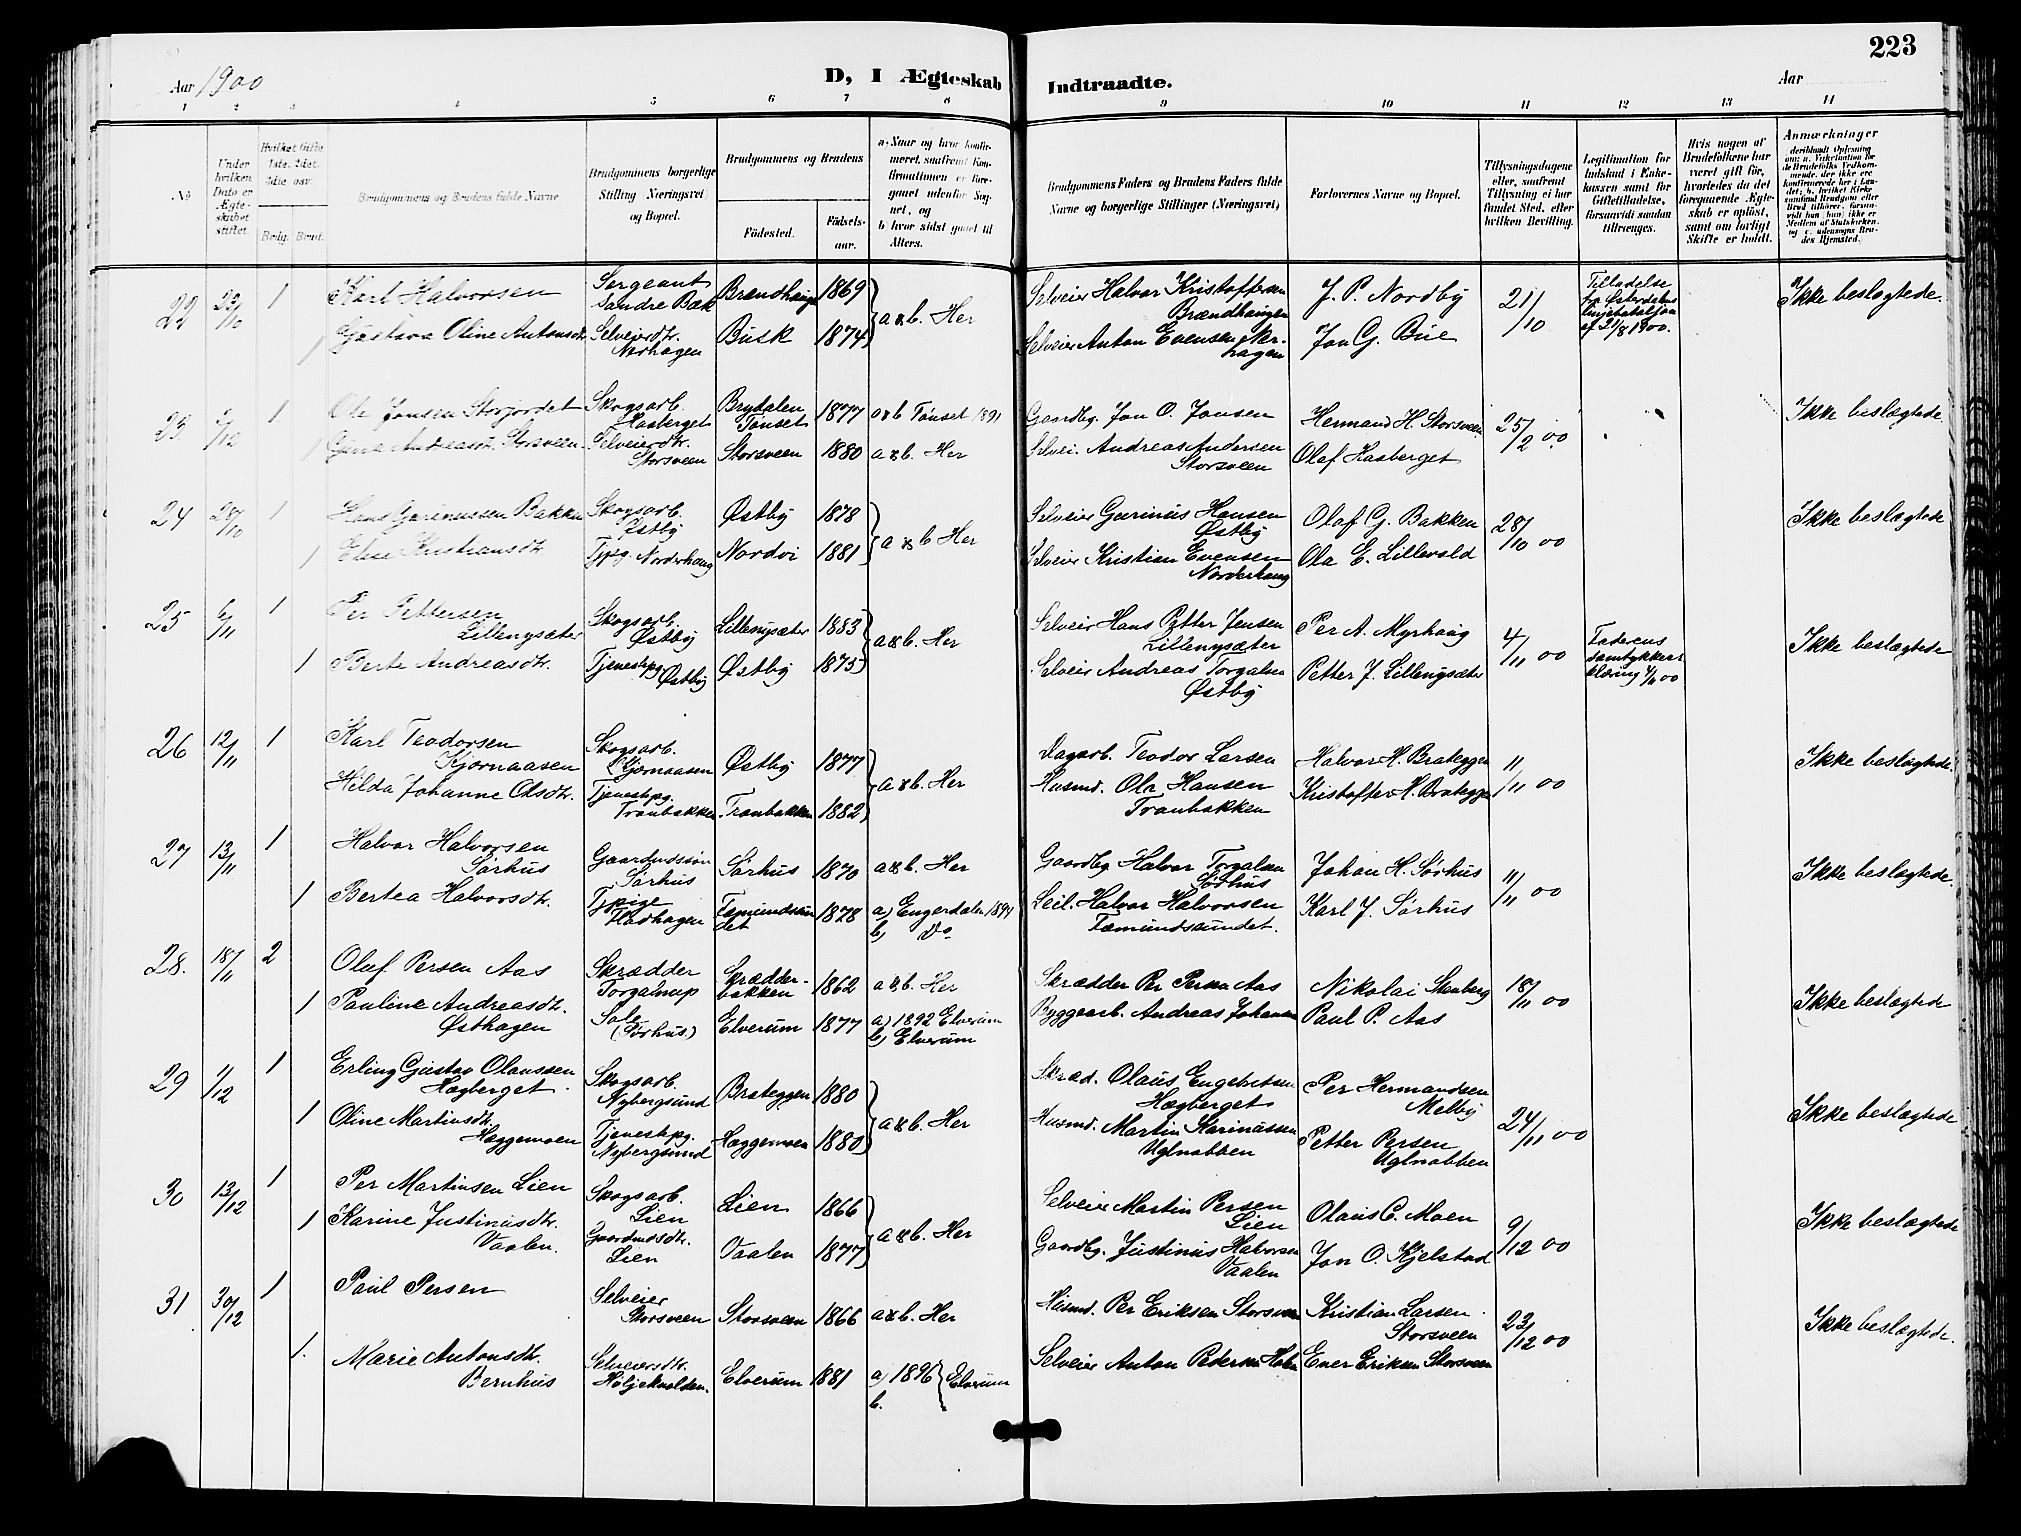 223
Aar 1900
D, I Ægteskab Indtraadte.
Aar
1 2 3 4 5 6 7 8 9 10 11 12 13 14
No
Under hvilken Dato er Ægteskabet stiftet.
Hvilket Gifte 1ste, 2det, 3die osv.
Brdg. Brud.
Brudgommens og Brudens fulde Navne
Brudgommens borgerlige Stilling (Næringsvei) og Bopæl.
Brudgommens og Brudens
Fødested.
Fødselsaar.
a. Naar og hvor konfirmeret, saafremt Konfirmationen er foregaaet udenfor Sognet, og
b hvor sidst gaaet til Alters.
Brudgommens Faders og Brudens Faders fulde Navne og borgerlige Stillinger (Næringsvei)
Forlovernes Navne og Bopæl.
Tillysningsdagene eller, saafremt Tillysning ei har fundet Sted, efter hvilken Bevilling.
Legitimation for Indskud i Enkekassen samt for Giftetilladelse, forsaavidt saadan tiltrænges.
Hvis nogen af Brudefolkene har været gift før, hvorledes da det foregaaende Ægteskab er opløst, samt om lovligt Skifte er holdt.
Anmærkninger
deriblandt Oplysning om: a. Vakcination for de Brudefolks Vedkommende, der ikke ere konfirmerede her i Landet; b. hvilket Kirkesamfund Brudgom eller Brud tilhører, forsaavidt han (hun) ikke er Medlem af Statskirken, og c. udensogns Brudes Hjemsted.
22 23/10 1 Karl Halvorsen Sergeant Søndre Bæk Brændhaugen 1869 a &amp; b. Her Selveier Halvor Kristoffersen Brændhaugen J. P. Nordby 21/10 Tilladelse fra Østerdalens Linjebataljon af 21/8 1900. Ikke beslægtede.
1 Gustava Oline Antonsdtr. Selveierdtr. Norhagen Busk 1874 Selveier Anton Evensen Norhagen Jon G. Bue
23 2/12 1 Ole Jonsen Storjordet Skogsarb. Haaberget Brydalen Tønset 1877 a &amp; b Tønset 1891 Gaardbg. Jon O. Jonsen Hermand H. Storsveen 25/2 00 Ikke beslægtede
1 Gina Andreasdtr. Storsveen Selveierdtr. Storsveen Storsveen 1880 a &amp; b. Her Selvei. Andreas Andersen Storsveen Olaf Haaberget
24 28/10 1 Hans Gurinussen Bakken Skogsarb. Østby Østby 1878 a &amp; b Her Selveier Gurinus Hansen Østby Olaf G. Bakken 28/10 00 Ikke beslægtede
1 Eline Kristiansdtr. Tjpg. Norderhaug Nordvi 1881 Selveier Kristian Evensen Norderhaug Ola E. Lillevold
25 6/11 1 Per Pettersen Lillenysæter Skogsarb. Østby Lillenysæter 1883 a &amp; b. Her Selveier Hans Petter Jensen Lillenysæter Per A. Myrhaug 4/11 00 Faderens samtykkeerklæring 4/11 00 Ikke beslægtede
1 Berte Andreasdtr. Tjenestpg Østby Østby 1875 Selveier Andreas Torgalsen Østby Petter J. Lillenysæter
26 12/11 1 Karl Teodorsen Kjørnaasen Skogsarb. Kjørnaasen Østby 1877 a &amp; b. Her Dagarb. Teodor Larsen Halvor H. Brateggen 11/11 00 Ikke beslægtede.
Hilda Johanne Olsdtr. Tjenestpg. Tranbakken Tranbakken 1882 Husmd. Ola Hansen Tranbakken Kristoffer H. Brateggen
27 13/11 1 Halvor Halvorsen Sørhus Gaardmdssøn Sørhus Sørhus 1870 a &amp; b. Her Gaardbg Halvor Torgalsen Sørhus Johan H. Sørhus 11/11 00 Ikke beslægtede.
1 Bertea Halvorsdtr. Tjpige Flodhagen Fæmundsundet 1878 a) Engerdalen 1894 b) Do Leil. Halvor Halvorsen Fæmundsundet. Karl J. Sørhus
28. 18/11 2 Oluf Persen Aas Skrædder Torgalrup Skrædderbakken 1862 a &amp; b. Her Skrædder Per Persen Aas Nikolai Stenberg 18/11 00 Ikke beslægtede
1 Pauline Andreasdtr. Østhagen Sole (Sørhus) Elverum 1877 a) 1892 Elverum b) Elverum Byggearb. Andreas Johansen Paul P. Aas
29 1/12 1 Erling Gustav Olaussen Hagberget Skogsarb. Nybergsund Brateggen 1880 a &amp; b. Her Skræd. Olaus Engebretsen Hagberget Per Hermandsen Melby 24/11 00 Ikke beslægtede
1 Oline Martinsdtr. Haggemoen Tjenestpg. Nybergsund Haggemoen 1880 Husmd. Martin Karinussen Uglnabben Petter Persen Uglnabben
30 13/12 1 Per Martinsen Lien Skogsarb. Lien Lien 1866 a &amp; b. Her Selveier Martin Persen Lien Olaus C. Moen 9/12 00 Ikke beslægtede
1 Karine Justinusdtr. Vaalen. Gaardmdsdtr. Lien Vaalen 1877 Gaardbg. Justinus Halvorsen Vaalen Jon O. Kjelstad
31 30/12 1 Paul Persen Selveier Storsveen Storsveen 1866 a &amp; b. Her Husmd. Per Eriksen Storsveen Kristian Larsen Storsveen 23/12 00 Ikke beslægtede.
1. Marie Antonsdtr. Bernhus Selveiersdtr. Høljekvolden. Elverum 1881 a) 1896 b. Elverum Selveier Anton Pedersen Holm Ener Eriksen Storsveen